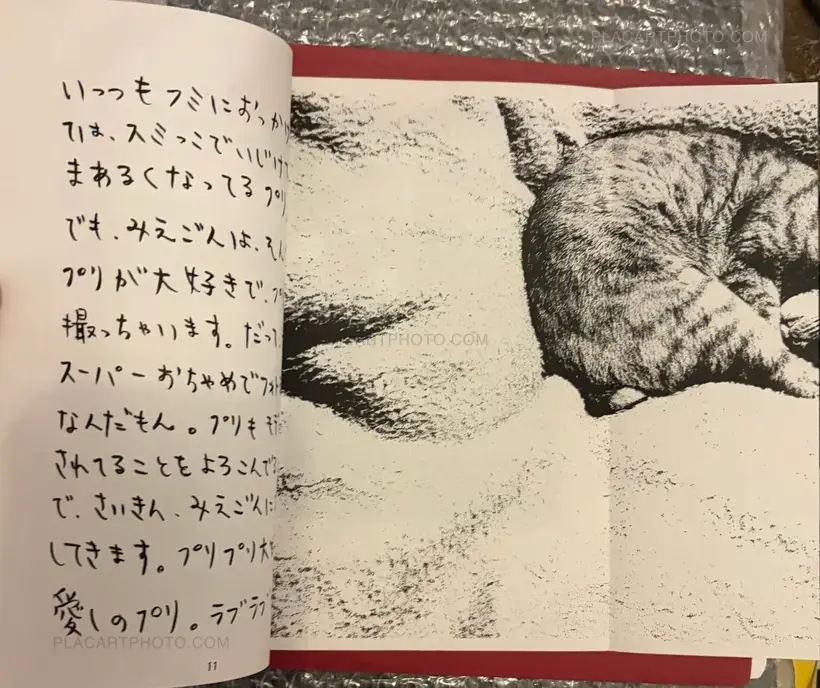 いっつもフミにおっかけ
ては、スミっこでいじけて
まあるくなってるプリ
でも、みえごんは、そん
プリが大好きで、プ
撮っちゃいます。だって、
スーパーおちゃめでフォト
なんだもん。プリも
されてることをよろこんで
で、さいきん、みえごんに
してきます。プリプリ大
愛しのプリ。ラブラブ
11
PLACARTPHOTO.COM
PLACARTPHOTO.COM
PLACARTPHOTO.COM
PLACARTPHOTO.COM